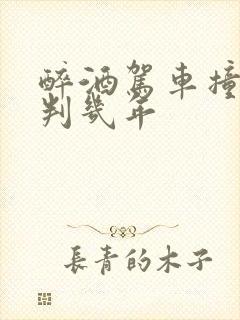 醉酒駕車撞
判幾年
長青的木子